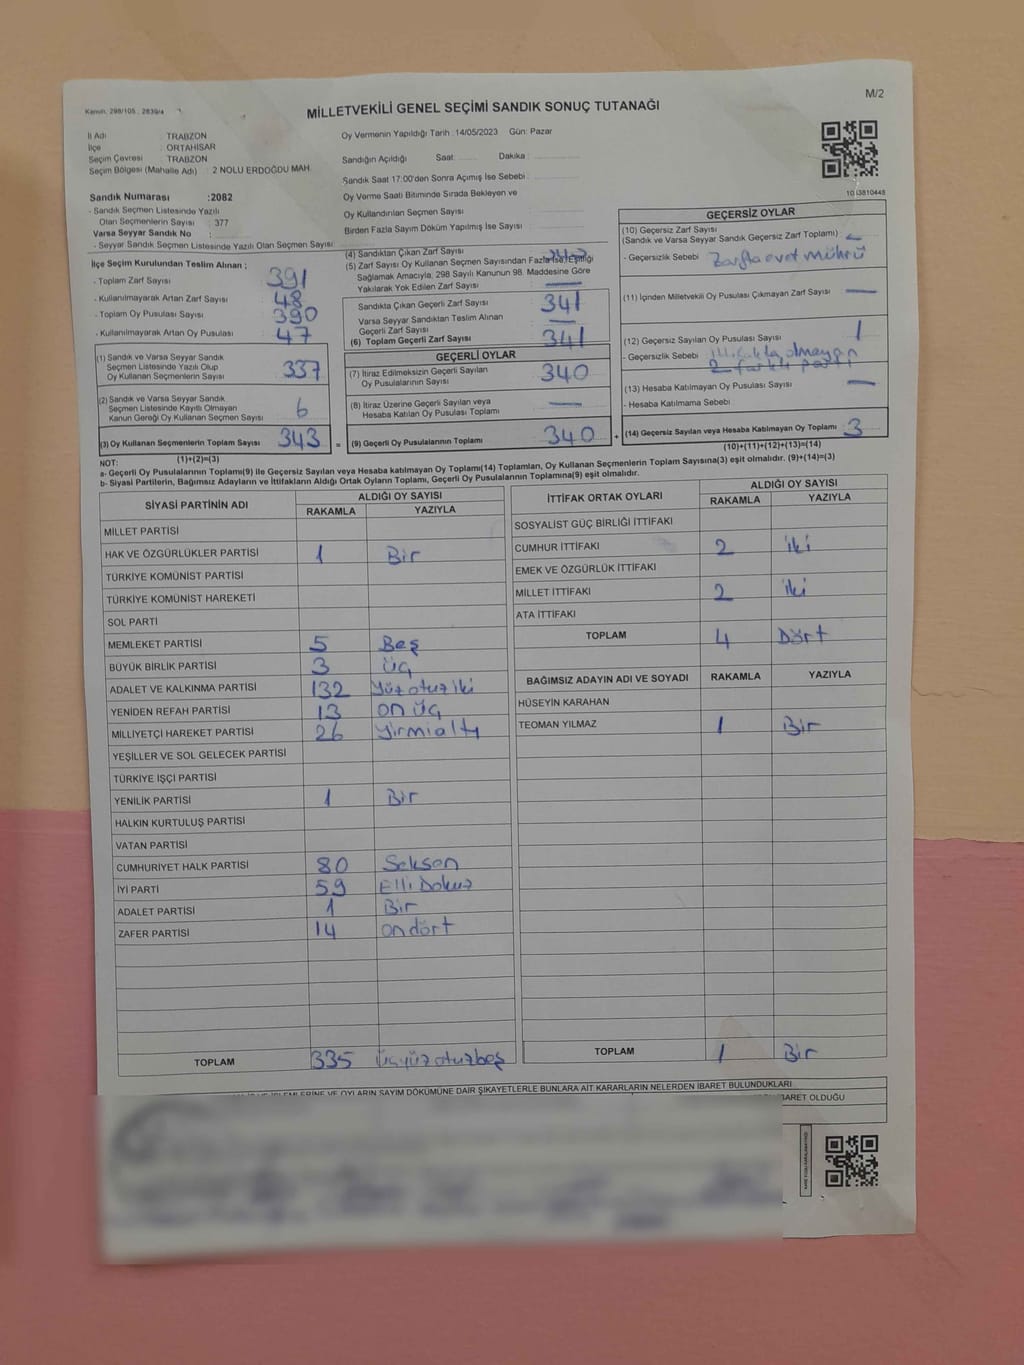 Kanun, 298/105, 2839/4
M/2
MİLLETVEKİLİ GENEL SEÇİMİ SANDIK SONUÇ TUTANAĞI
İl Adı : TRABZON
İlçe : ORTAHİSAR
Seçim Çevresi : TRABZON
Seçim Bölgesi (Mahalle Adı) : 2 NOLU ERDOĞDU MAH.
Oy Vermenin Yapıldığı Tarih : 14/05/2023 Gün: Pazar
Sandığın Açıldığı Saat: Dakika :
Sandık Saat 17:00'den Sonra Açılmış İse Sebebi :
Oy Verme Saati Bitiminde Sırada Bekleyen ve
Oy Kullandırılan Seçmen Sayısı :
Birden Fazla Sayım Döküm Yapılmış İse Sayısı :
Sandık Numarası :2082
- Sandık Seçmen Listesinde Yazılı
Olan Seçmenlerin Sayısı : 377
Varsa Seyyar Sandık No :
- Seyyar Sandık Seçmen Listesinde Yazılı Olan Seçmen Sayısı :
İlçe Seçim Kurulundan Teslim Alınan ;
- Toplam Zarf Sayısı : 391
- Kullanılmayarak Artan Zarf Sayısı : 48
- Toplam Oy Pusulası Sayısı : 390
- Kullanılmayarak Artan Oy Pusulası : 47
(1) Sandık ve Varsa Seyyar Sandık
Seçmen Listesinde Yazılı Olup
Oy Kullanan Seçmenlerin Sayısı : 337
(2) Sandık ve Varsa Seyyar Sandık
Seçmen Listesinde Kayıtlı Olmayan
Kanun Gereği Oy Kullanan Seçmen Sayısı : 6
(3) Oy Kullanan Seçmenlerin Toplam Sayısı : 343
(1)+(2)=(3)
(4) Sandıktan Çıkan Zarf Sayısı :
(5) Zarf Sayısı Oy Kullanan Seçmen Sayısından Fazla İse, Eşitliği
Sağlamak Amacıyla, 298 Sayılı Kanunun 98. Maddesine Göre
Yakılarak Yok Edilen Zarf Sayısı : —
Sandıkta Çıkan Geçerli Zarf Sayısı : 341
Varsa Seyyar Sandıktan Teslim Alınan
Geçerli Zarf Sayısı : —
(6) Toplam Geçerli Zarf Sayısı : 341
GEÇERLİ OYLAR
(7) İtiraz Edilmeksizin Geçerli Sayılan
Oy Pusulalarının Sayısı : 340
(8) İtiraz Üzerine Geçerli Sayılan veya
Hesaba Katılan Oy Pusulası Toplamı : —
= (9) Geçerli Oy Pusulalarının Toplamı : 340
1013810448
GEÇERSİZ OYLAR
(10) Geçersiz Zarf Sayısı
(Sandık ve Varsa Seyyar Sandık Geçersiz Zarf Toplamı) : 2
- Geçersizlik Sebebi : Zarfta evet mührü
(11) İçinden Milletvekili Oy Pusulası Çıkmayan Zarf Sayısı : —
(12) Geçersiz Sayılan Oy Pusulası Sayısı : 1
- Geçersizlik Sebebi : İttifakta olmayan
2 farklı parti
(13) Hesaba Katılmayan Oy Pusulası Sayısı : —
- Hesaba Katılmama Sebebi :
+ (14) Geçersiz Sayılan veya Hesaba Katılmayan Oy Toplamı : 3
(10)+(11)+(12)+(13)=(14)
NOT:
a- Geçerli Oy Pusulalarının Toplamı(9) ile Geçersiz Sayılan veya Hesaba katılmayan Oy Toplamı(14) Toplamları, Oy Kullanan Seçmenlerin Toplam Sayısına(3) eşit olmalıdır. (9)+(14)=(3)
b- Siyasi Partilerin, Bağımsız Adayların ve İttifakların Aldığı Ortak Oyların Toplamı, Geçerli Oy Pusulalarının Toplamına(9) eşit olmalıdır.
SİYASİ PARTİNİN ADI ALDIĞI OY SAYISI
RAKAMLA YAZIYLA
MİLLET PARTİSİ
HAK VE ÖZGÜRLÜKLER PARTİSİ 1 Bir
TÜRKİYE KOMÜNİST PARTİSİ
TÜRKİYE KOMÜNİST HAREKETİ
SOL PARTİ
MEMLEKET PARTİSİ 5 Beş
BÜYÜK BİRLİK PARTİSİ 3 üç
ADALET VE KALKINMA PARTİSİ 132 yüz otuz iki
YENİDEN REFAH PARTİSİ 13 on üç
MİLLİYETÇİ HAREKET PARTİSİ 26 yirmi altı
YEŞİLLER VE SOL GELECEK PARTİSİ
TÜRKİYE İŞÇİ PARTİSİ
YENİLİK PARTİSİ 1 Bir
HALKIN KURTULUŞ PARTİSİ
VATAN PARTİSİ
CUMHURİYET HALK PARTİSİ 80 Seksen
İYİ PARTİ 59 Elli Dokuz
ADALET PARTİSİ 1 Bir
ZAFER PARTİSİ 14 on dört
TOPLAM 335 üçyüz otuzbeş
İTTİFAK ORTAK OYLARI ALDIĞI OY SAYISI
RAKAMLA YAZIYLA
SOSYALİST GÜÇ BİRLİĞİ İTTİFAKI
CUMHUR İTTİFAKI 2 iki
EMEK VE ÖZGÜRLÜK İTTİFAKI
MİLLET İTTİFAKI 2 iki
ATA İTTİFAKI
TOPLAM 4 Dört
BAĞIMSIZ ADAYIN ADI VE SOYADI RAKAMLA YAZIYLA
HÜSEYİN KARAHAN
TEOMAN YILMAZ 1 Bir
TOPLAM 1 Bir
VE OYLARIN SAYIM DÖKÜMÜNE DAİR ŞİKAYETLERLE BUNLARA AİT KARARLARIN NELERDEN İBARET BULUNDUKLARI
İBARET OLDUĞU